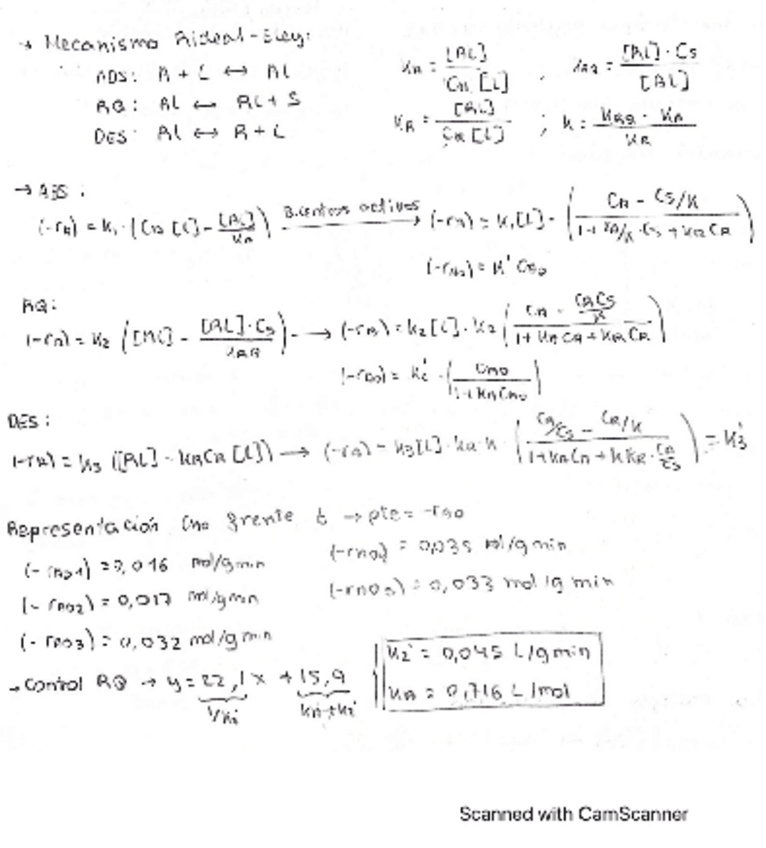 → Mecanismo Rideal-Eley:
ADS: A + L ↔ AL
RQ: AL ↔ RL + S
DES: RL ↔ R + L
K_A = [AL] / C_A [L] ; K_RQ = [RL]·C_S / [AL]
K_R = [RL] / C_R [L] ; K = K_RQ · K_A / K_R
→ ADS:
(-r_A) = k_1 · (C_A [L] - [AL]/K_A) B.centros activos → (-r_A) = k_1[L] · ( C_A - C_S/K / 1 + K_A/K · C_S + K_R C_R )
(-r_A0) = k' C_A0
RQ:
(-r_A) = k_2 ([AL] - [RL]·C_S / K_RQ) → (-r_A) = k_2 [L] · K_A ( C_A - C_R C_S/K / 1 + K_A C_A + K_R C_R )
(-r_A0) = k_2' · ( C_A0 / 1 + K_A C_A0 )
DES:
(-r_A) = k_3 ([RL] - K_R C_R [L]) → (-r_A) = k_3 [L] · K_R · K · ( C_A/C_S - C_R/K / 1 + K_A C_A + K K_R · C_A/C_S ) = k_3'
Representación C_A0 frente t → pte = -r_A0
(-r_A01) = 0,016 mol/g min
(-r_A02) = 0,017 mol/g min
(-r_A03) = 0,032 mol/g min
(-r_A04) = 0,035 mol/g min
(-r_A05) = 0,033 mol/g min
→ Control RQ → y = 22,1 x + 15,9
1/k_2'
k_2' = 0,045 L/g min
K_A = 0,716 L/mol
Scanned with CamScanner